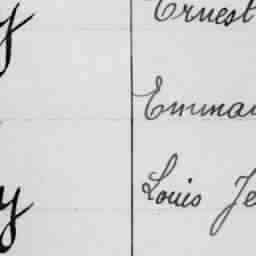 Ernest
Emma
y Louis Je